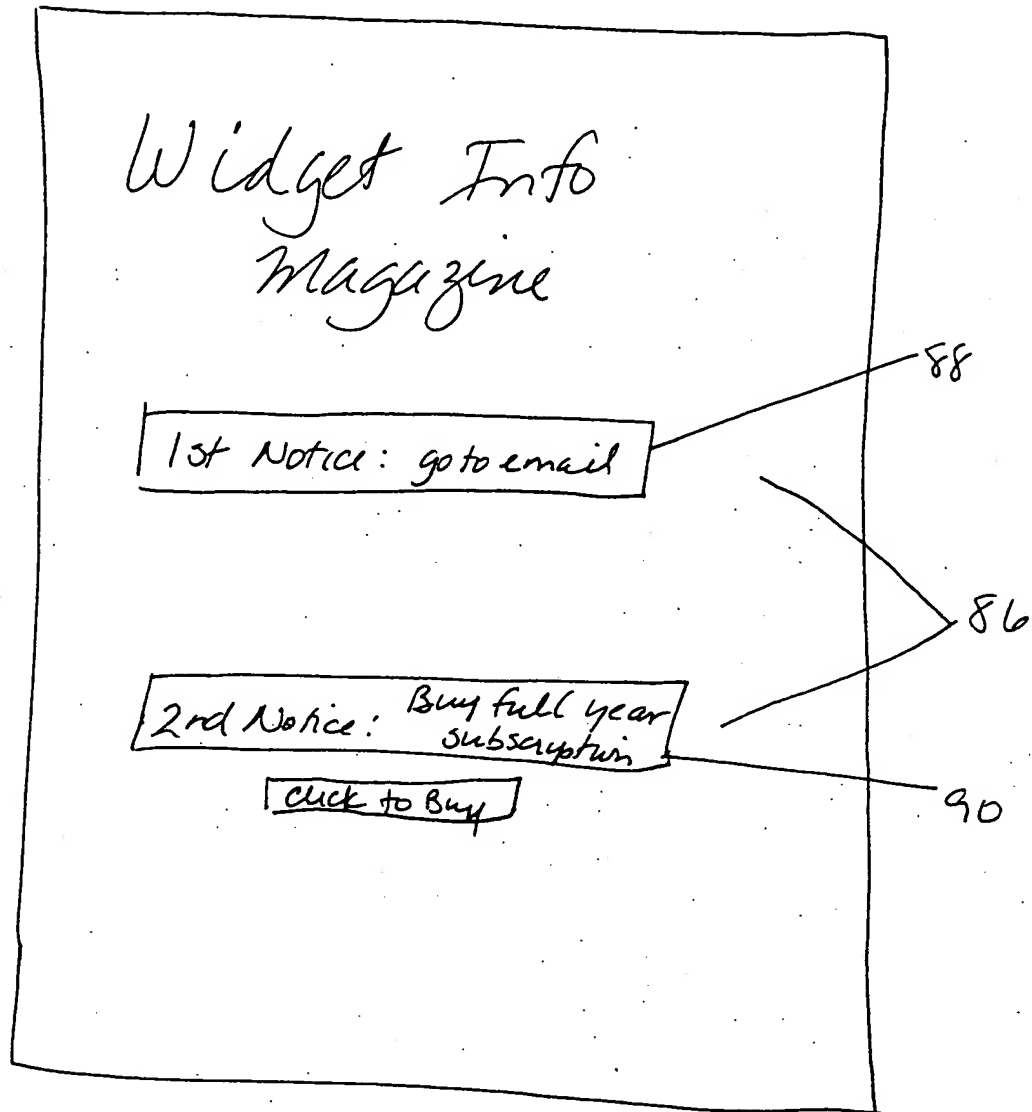 Widget Info
Magazine
88
1st Notice: go to email
86
2nd Notice: Buy full year
subscription
click to Buy
90